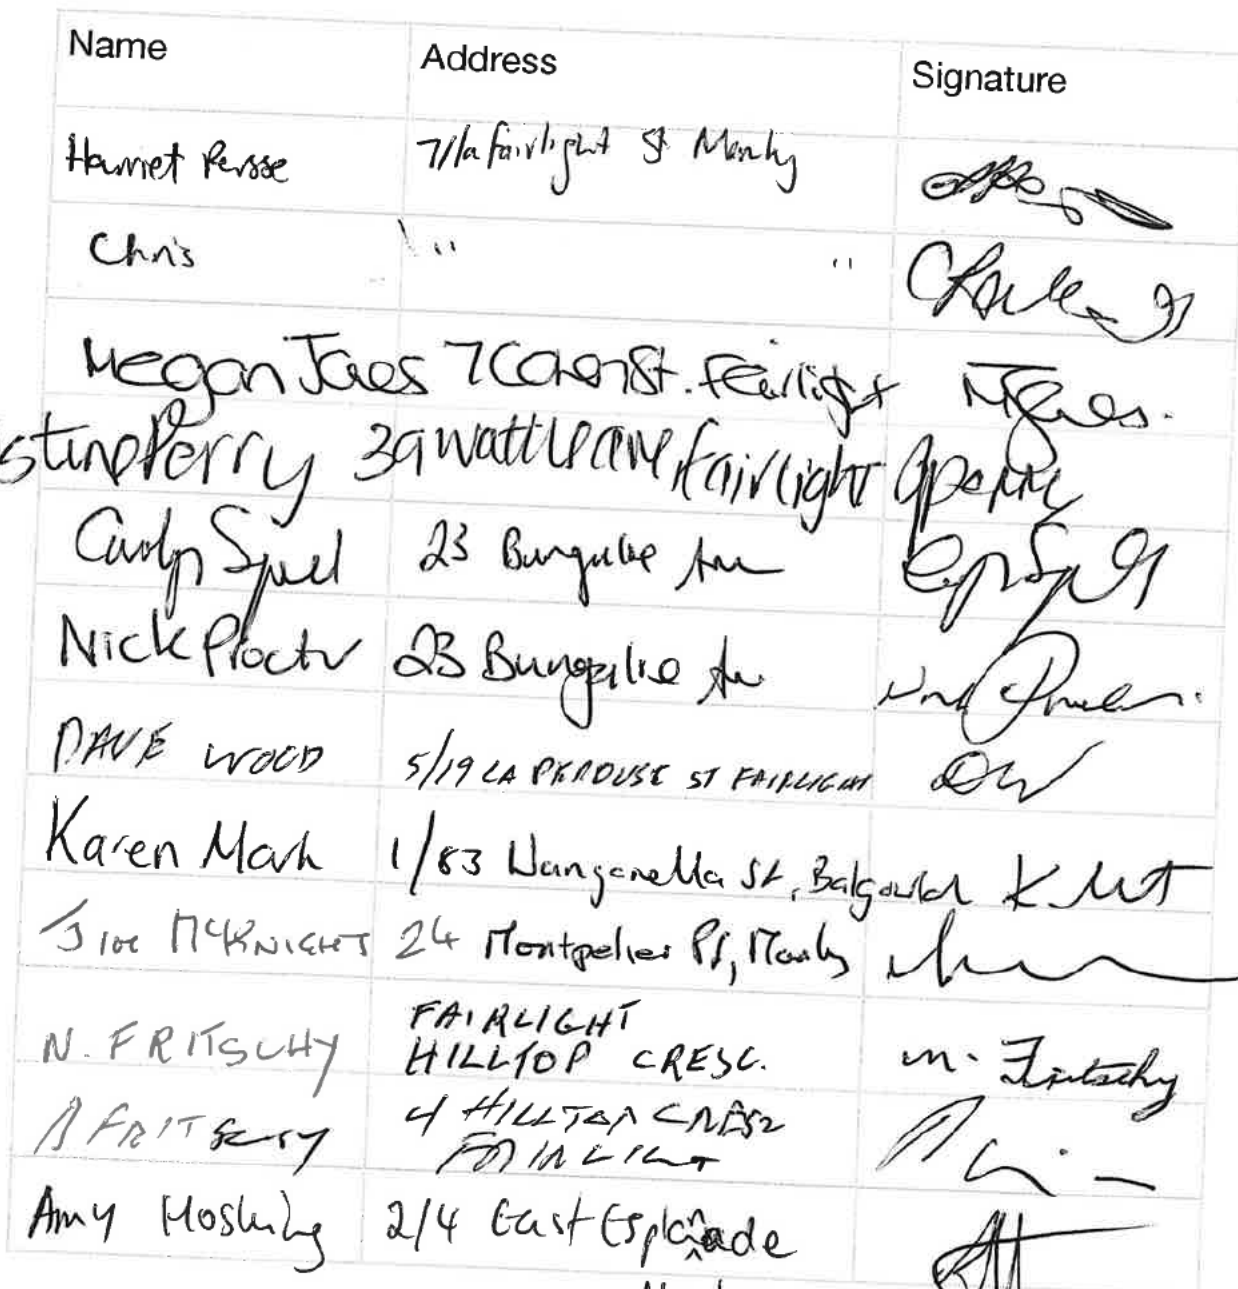 Name Address Signature
Harriet Persse 7/1a Fairlight St Manly
Chris " "
Megan St. Fairlight
Perry 39 wattle ave, fairlight
23 Bungaloe Ave
Nick Proctor 23 Bungaloe Av
DAVE WOOD 5/19 LA PEROUSE ST FAIRLIGHT DW
Karen Mark 1/83 Wanganella St, Balgowlah
McKNIGHT 24 Montpelier Pl, Manly
FAIRLIGHT
N. FRITSCHY HILLTOP CRESC. N. Fritschy
FRITSCHY 4 HILLTOP CRESC
FAIRLIGHT
Amy Hosking 2/4 East Esplanade